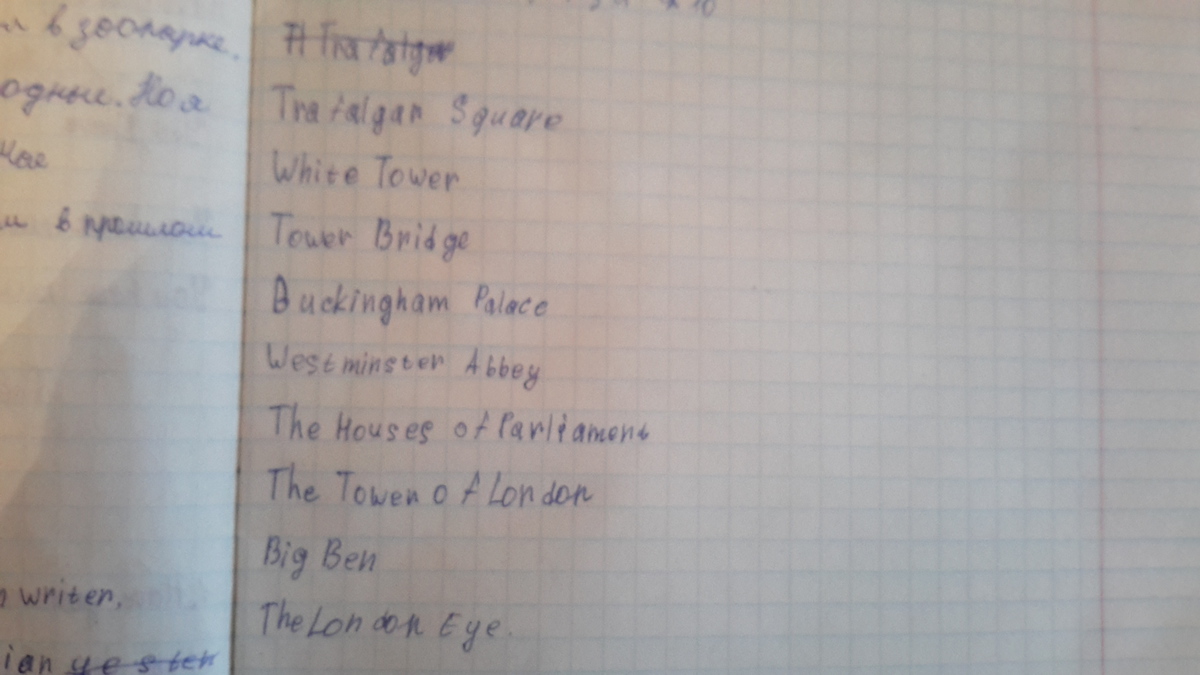 в зоопарке.
одные. Но я
в прошлом
writer,
ian yester
Trafalgar
Trafalgar Square
White Tower
Tower Bridge
Buckingham Palace
Westminster Abbey
The Houses of Parliament
The Tower of London
Big Ben
The London Eye.